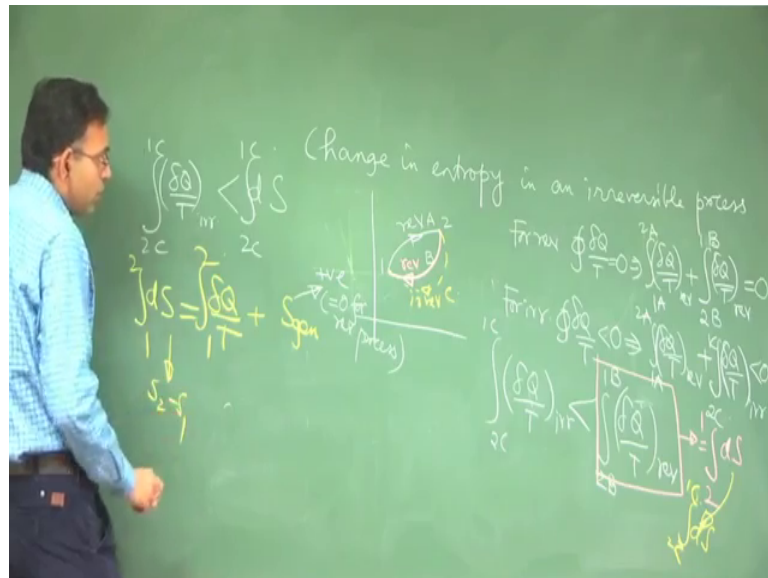 Change in entropy in an irreversible process
∫_{2C}^{1C} (δQ/T)_{irr} < ∫_{2C}^{1C} dS
∫_1^2 dS = ∫_1^2 δQ/T + S_{gen}
S_2 - S_1
+ve
(=0 for
rev process)
rev A 2
1 rev B
irrev C
For rev ∮ δQ/T = 0 ⇒ ∫_{1A}^{2A} (δQ/T)_{rev} + ∫_{2B}^{1B} (δQ/T)_{rev} = 0
For irr ∮ δQ/T < 0 ⇒ ∫_{1A}^{2A} (δQ/T)_{rev} + ∫_{2C}^{1C} (δQ/T)_{irr} < 0
∫_{2C}^{1C} (δQ/T)_{irr} < ∫_{2B}^{1B} (δQ/T)_{rev} → = ∫_2^1 dS